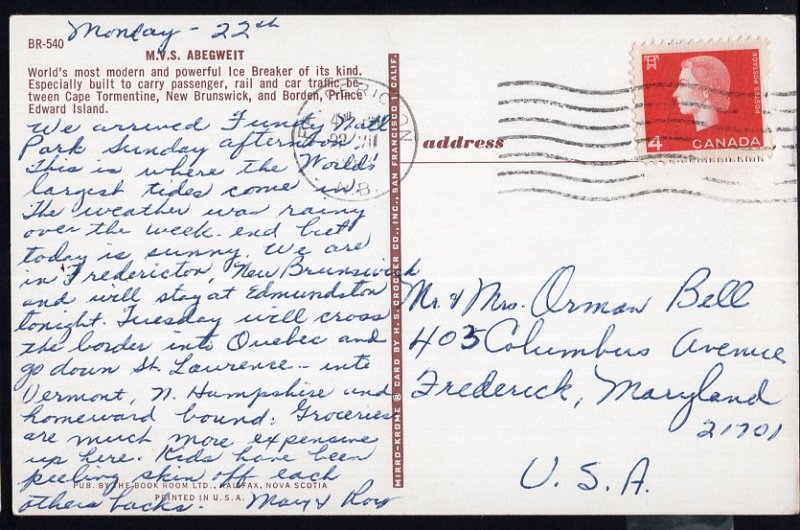 Monday - 22nd
BR-540
M.V.S. ABEGWEIT
World's most modern and powerful Ice Breaker of its kind.
Especially built to carry passenger, rail and car traffic be-
tween Cape Tormentine, New Brunswick, and Borden, Prince
Edward Island.
We arrived Fundy Natl
Park Sunday afternoon.
This is where the World's
largest tides come in.
The weather was rainy
over the week-end but
today is sunny. We are
in Fredericton, New Brunswick
and will stay at Edmundston
tonight. Tuesday will cross
the border into Quebec and
go down St. Lawrence -- into
Vermont, N. Hampshire and
homeward bound. Groceries
are much more expensive
up here. Kids have been
peeling skin off each
others backs. Mary & Roy
PUB. BY THE BOOK ROOM LTD., HALIFAX, NOVA SCOTIA
PRINTED IN U.S.A.
MIRRO-KROME CARD BY H. S. CROCKER CO., INC., SAN FRANCISCO 1, CALIF.
FREDERICTON
N.B.
address
4
CANADA
POSTES POSTAGE
Mr & Mrs. Orman Bell
403 Columbus Avenue
Frederick, Maryland
21701
U.S.A.